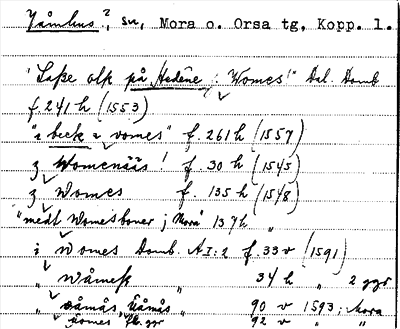 Våmhus?, sn, Mora o. Orsa tg, Kopp. l.
"Lasse olk på Hedene, j Womes!" Dal. Domb
f. 241 h (1553)
"i beck i vomes" f. 261 h (1557)
z Womenääs! f. 30 h (1545)
z Womes f. 135 h (1548)
"medt Womesboner j Mora" 137 h "
i Womes Domb. AI:2 f. 33 v (1591)
" Wåmess " 34 h " 2 ggr
" Våmås, Våmås " 90 v 1593; Mora
" Vomes fl. gr 92 v " "